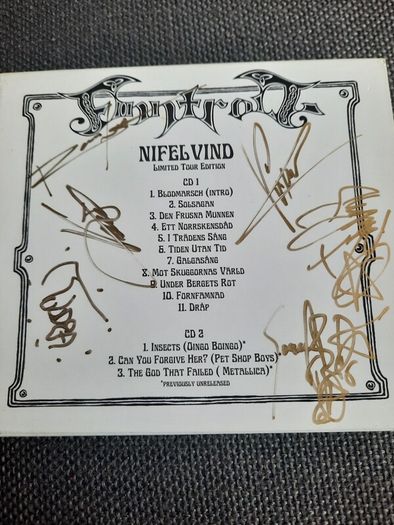 Finntroll
NIFELVIND
LIMITED TOUR EDITION
CD 1
1. BLODMARSCH (INTRO)
2. SOLSAGAN
3. DEN FRUSNA MUNNEN
4. ETT NORRSKENSDÅD
5. I TRÄDENS SÅNG
6. TIDEN UTAN TID
7. GALGASÅNG
8. MOT SKUGGORNAS VÄRLD
9. UNDER BERGETS ROT
10. FORNFAMNAD
11. DRÅP
CD 2
1. INSECTS (OINGO BOINGO)*
2. CAN YOU FORGIVE HER? (PET SHOP BOYS)*
3. THE GOD THAT FAILED ( METALLICA)*
*PREVIOUSLY UNRELEASED